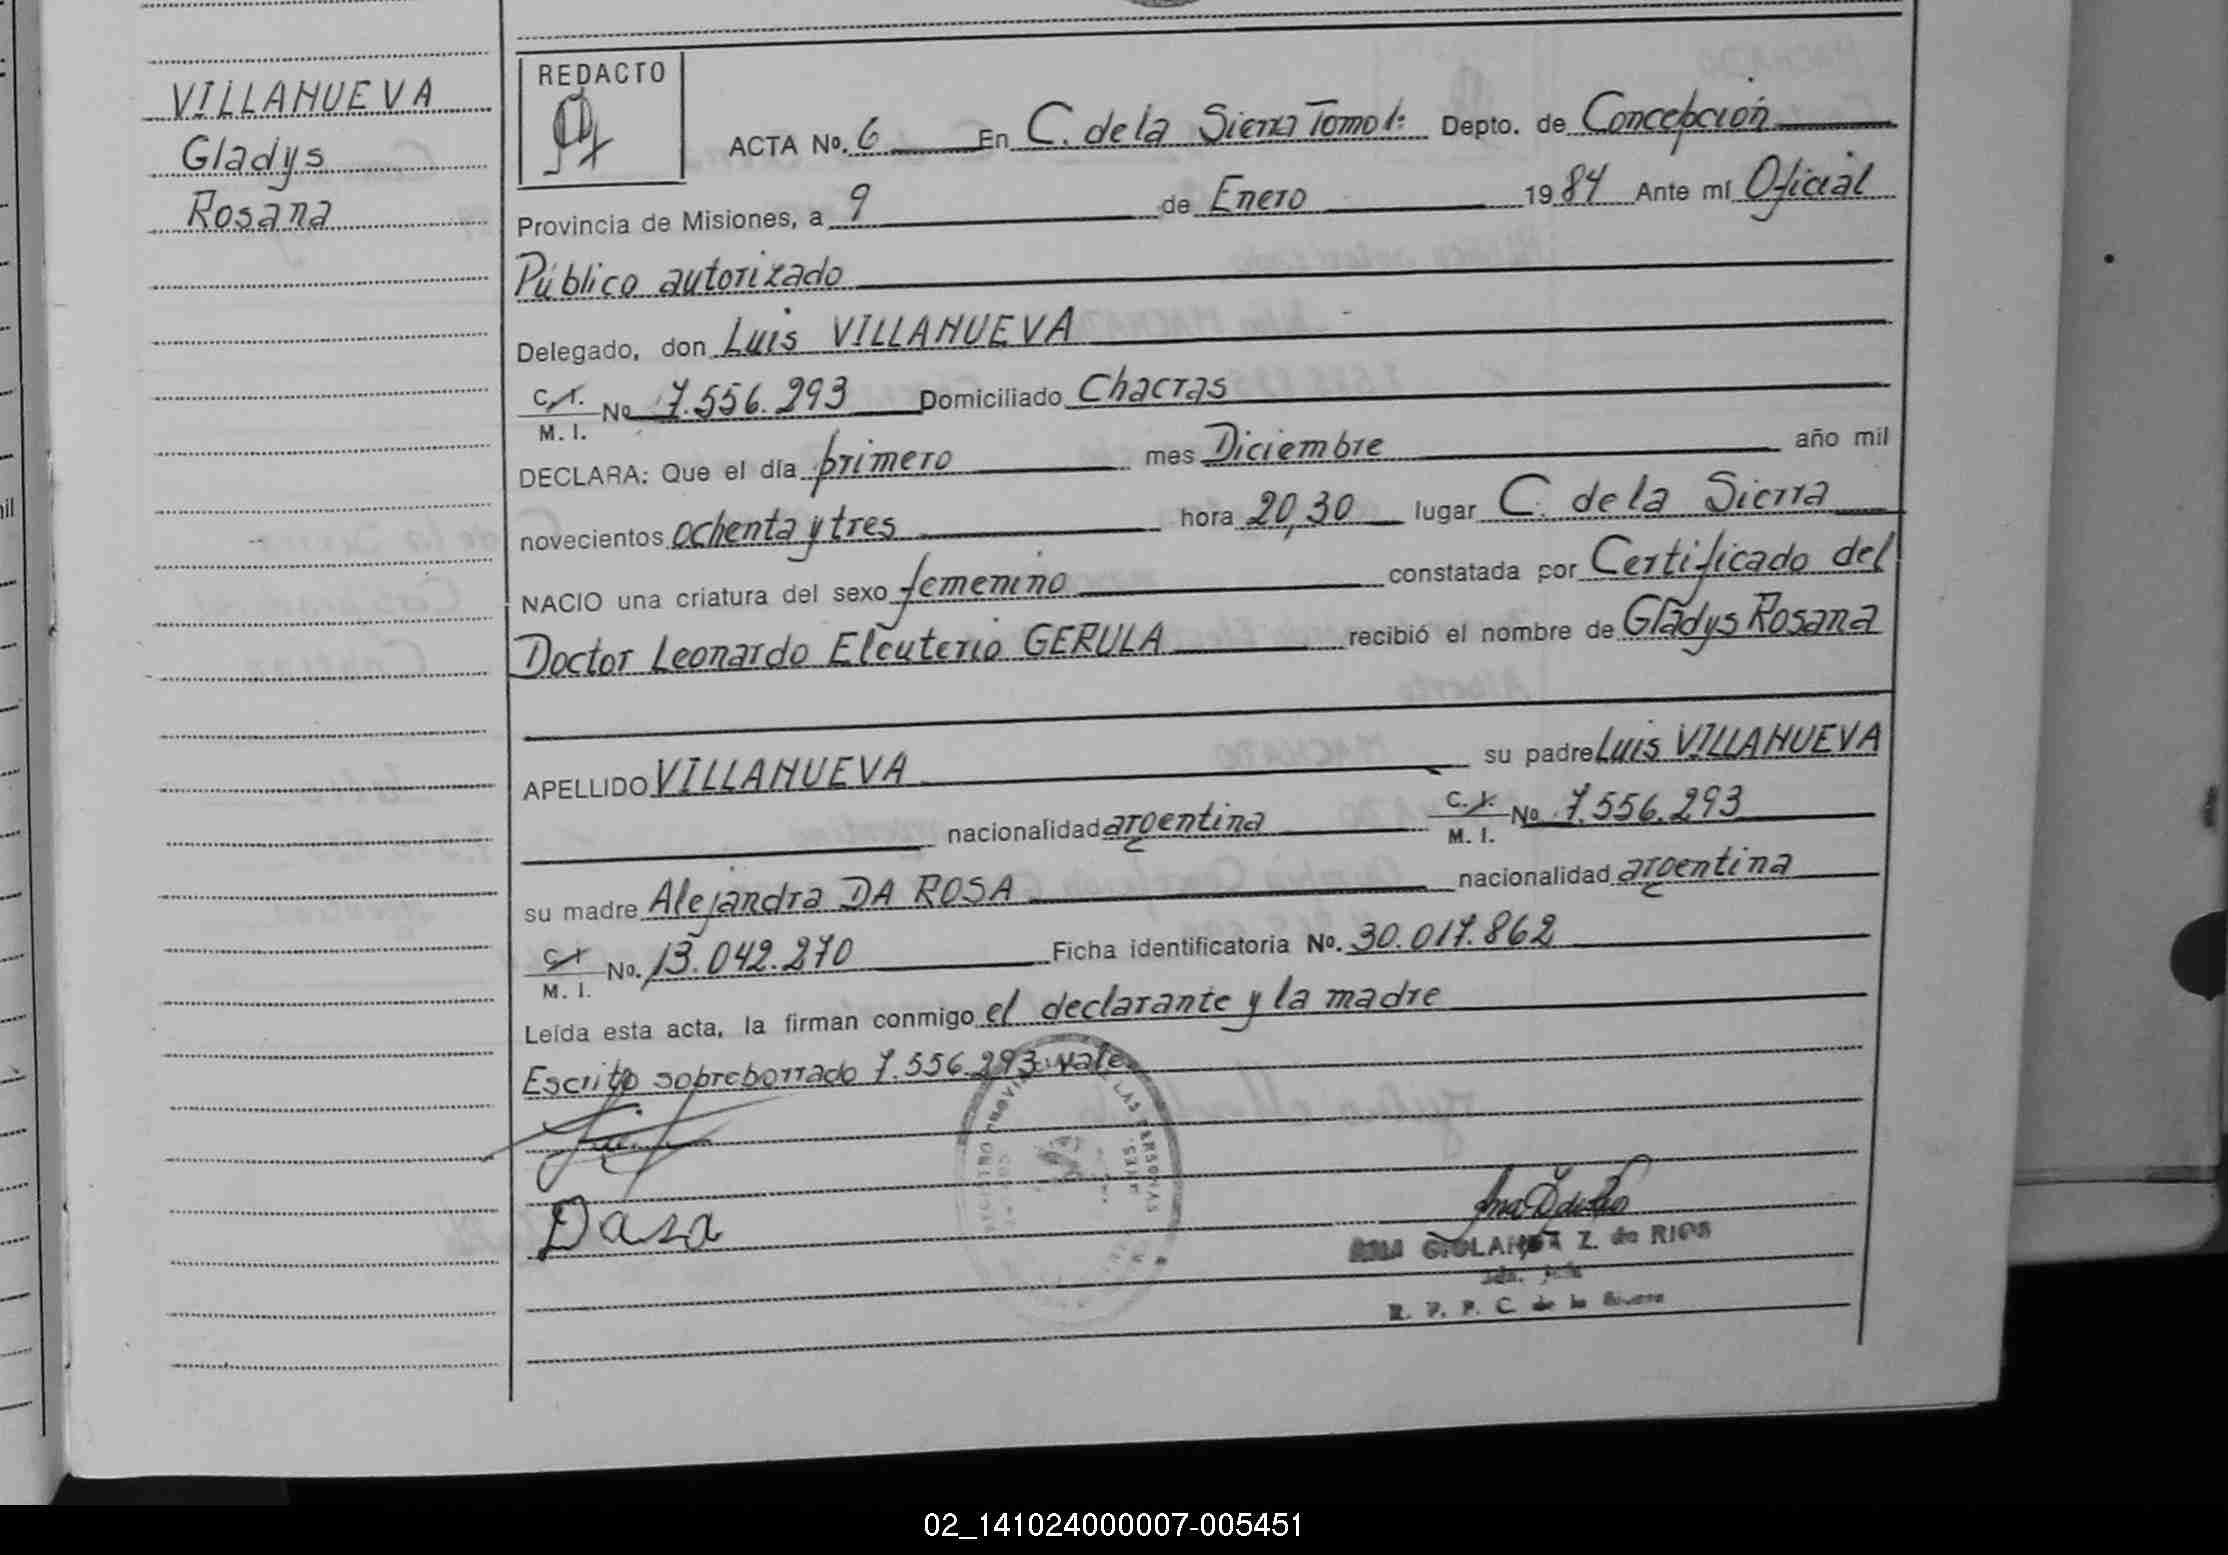 VILLANUEVA
Gladys
Rosana
REDACTO
ACTA No. 6 En C. de la Sierra Tomo 1: Depto. de Concepción
Provincia de Misiones, a 9 de Enero 1984 Ante mí Oficial
Público autorizado
Delegado, don Luis VILLANUEVA
C. I. M. I. No 7.556.293 Domiciliado Chacras
DECLARA: Que el día primero mes Diciembre año mil
novecientos ochenta y tres hora 20,30 lugar C. de la Sierra
NACIO una criatura del sexo femenino constatada por Certificado del
Doctor Leonardo Eleuterio GERULA recibió el nombre de Gladys Rosana
APELLIDO VILLANUEVA su padre Luis VILLANUEVA
nacionalidad argentina C. I. M. I. No 7.556.293
su madre Alejandra DA ROSA nacionalidad argentina
C I M. I. No. 13.042.270 Ficha identificatoria No. 30.017.862
Leída esta acta, la firman conmigo el declarante y la madre
Escrito sobreborrado 7.556.293: vale
REGISTRO PROVINCIAL DE LAS PERSONAS
Z. de RIOS
R. P. P. C. de la Sierra
02_141024000007-005451